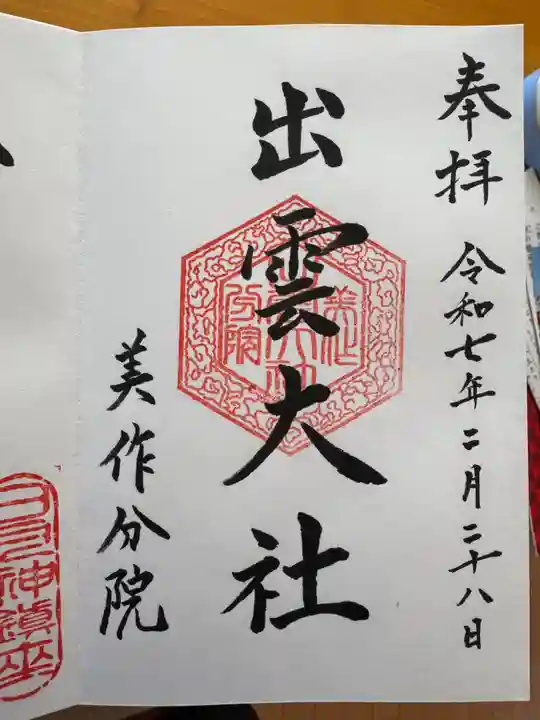 奉拝 令和七年二月二十八日
出雲大社
美作分院
神鎮座